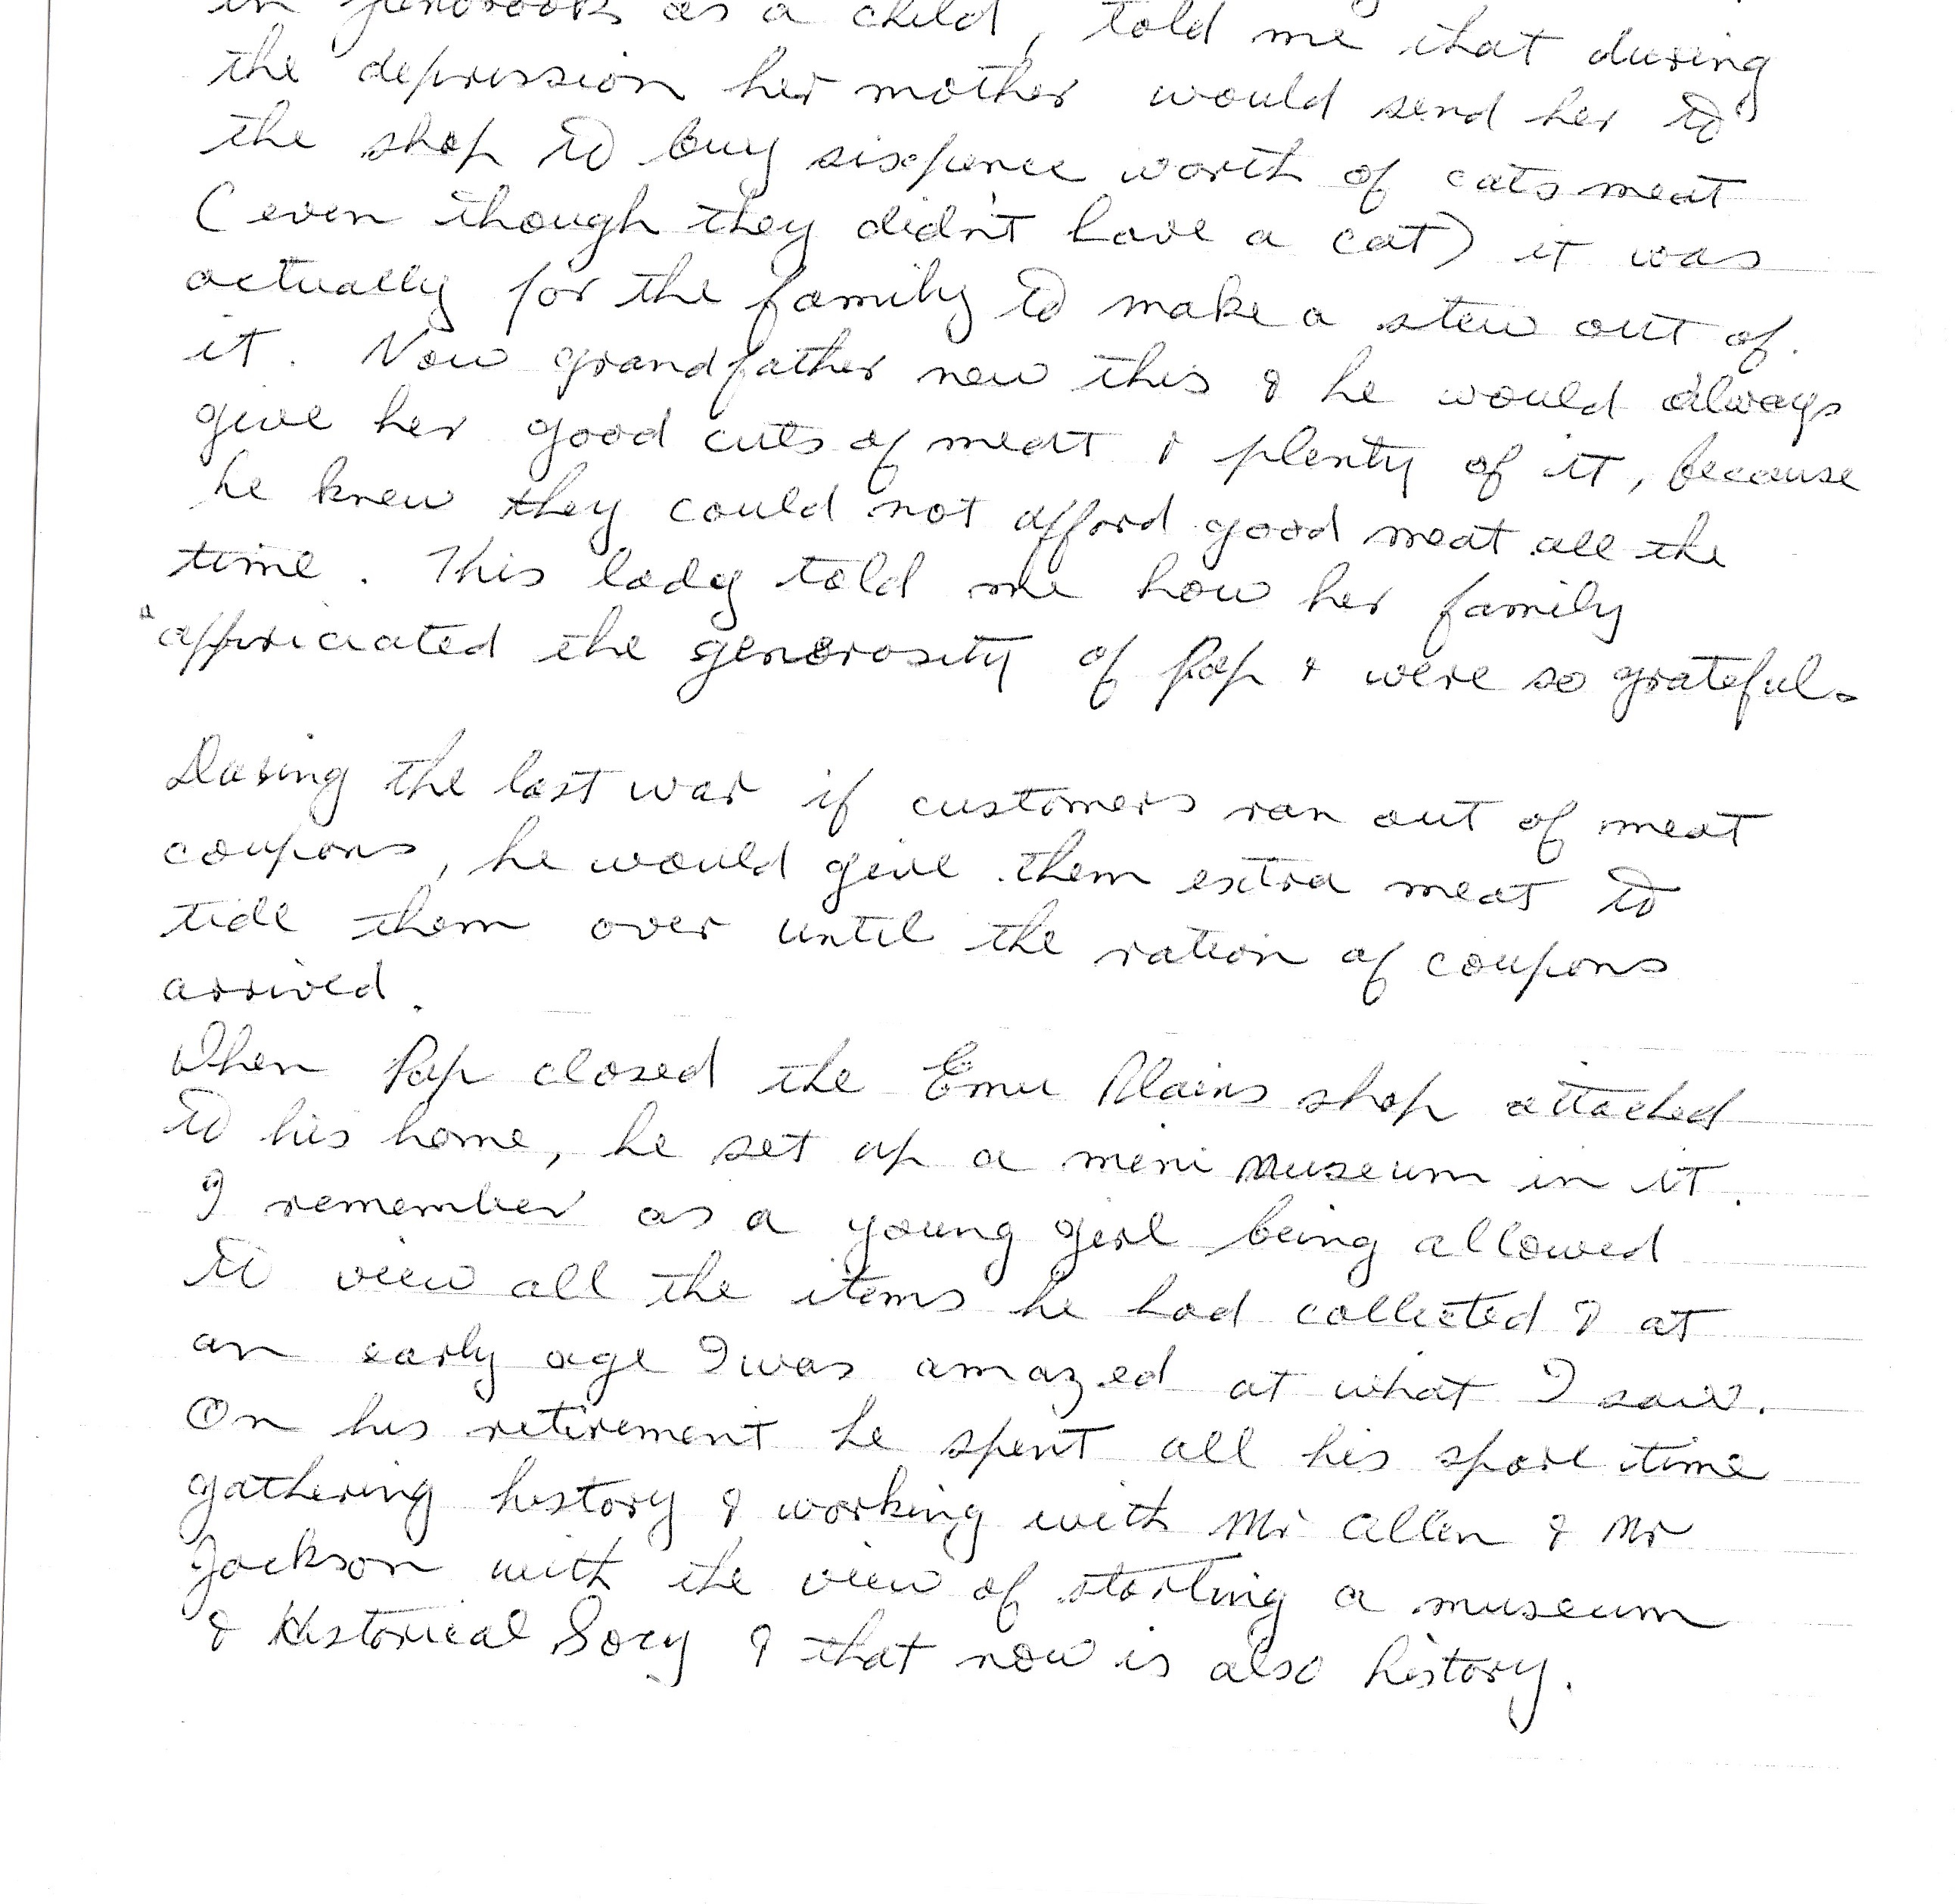 in Glenbrook as a child, told me that during
the depression her mother would send her to
the shop to buy sixpence worth of cats meat
(even though they didn't have a cat) it was
actually for the family to make a stew out of.
it. Now grandfather new this & he would always
give her good cuts of meat & plenty of it, because
he knew they could not afford good meat all the
time. This lady told me how her family
appriciated the generosity of Pop & were so grateful.
During the last war if customers ran out of meat
coupons, he would give them extra meat to
tide them over until the ration of coupons
arrived.
When Pop closed the Emu Plains shop attached
to his home, he set up a mini museum in it.
I remember as a young girl being allowed
to view all the items he had collected & at
an early age I was amazed at what I saw.
On his retirement he spent all his spare time
gathering history & working with Mr Allen & Mr
Jackson with the view of starting a museum
& Historical Socy & that now is also history.